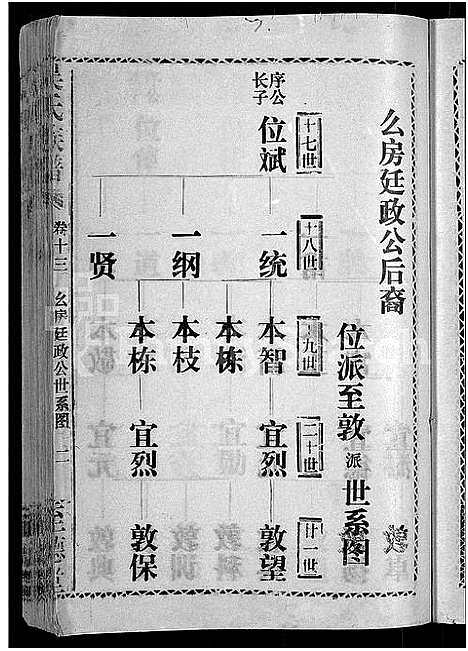 幺房廷政公后裔
位派至敦派世系图
十七世
十八世
十九世
二十世
廿一世
序公长子
位斌
一统
一纲
一贤
本智
本栋
本枝
本栋
宜烈
宜烈
敦望
敦保
氏族谱
卷十三
幺房廷政公世系图
二